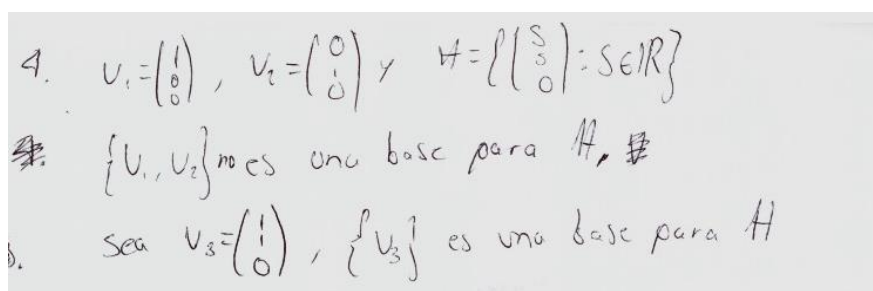 4. V₁=(1 0 0), V₂=(0 1 0) y H={(S S 0): S∈ℝ}
{V₁, V₂} no es una base para H,
Sea V₃=(1 1 0), {V₃} es una base para H